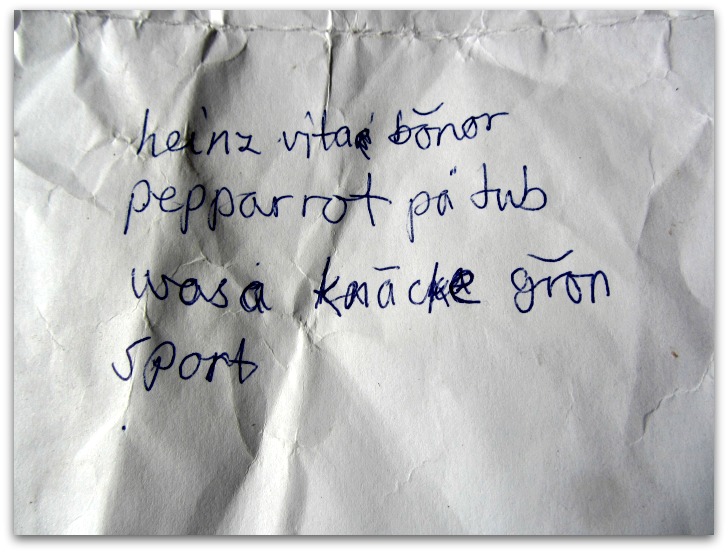 heinz vita bönor
pepparrot på tub
wasa knäcke grön
sport